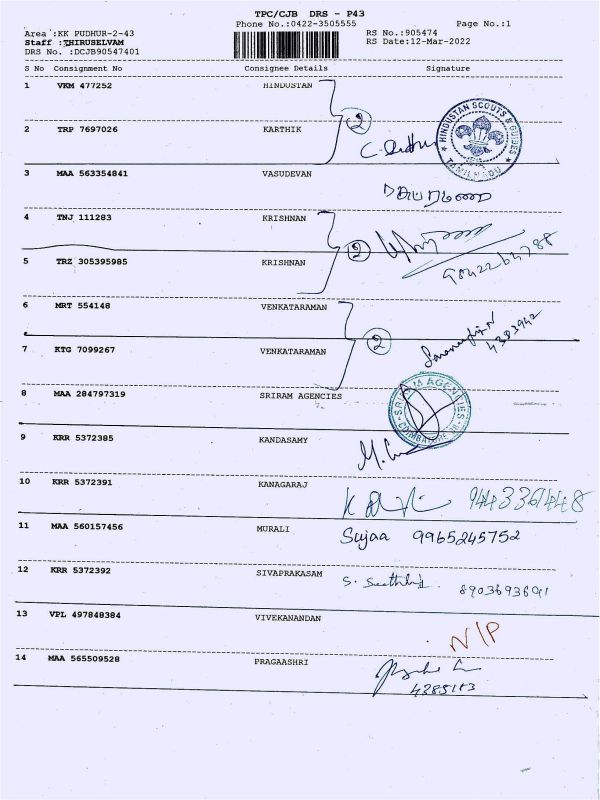 TPC/CJB DRS - P43
Phone No.:0422-3505555 Page No.:1
Area :KK PUDHUR-2-43 RS No.:905474
Staff :THIRUSELVAM RS Date:12-Mar-2022
DRS No. :DCJB90547401
S No Consignment No Consignee Details Signature
1 VKM 477252 HINDUSTAN
2
HINDUSTAN SCOUTS & GUIDES
TAMILNADU
2 TRP 7697026 KARTHIK
3 MAA 563354841 VASUDEVAN
4 TNJ 111283 KRISHNAN
2
9842264788
5 TRZ 305395985 KRISHNAN
6 MRT 554148 VENKATARAMAN
2
4383942
7 KTG 7099267 VENKATARAMAN
8 MAA 284797319 SRIRAM AGENCIES
SRIRAM AGENCIES
COIMBATORE
9 KRR 5372385 KANDASAMY
10 KRR 5372391 KANAGARAJ
9443361448
11 MAA 560157456 MURALI Sujaa 9965245752
12 KRR 5372392 SIVAPRAKASAM
8903693691
13 VPL 497848384 VIVEKANANDAN
N/P
14 MAA 565509528 PRAGAASHRI
4285113